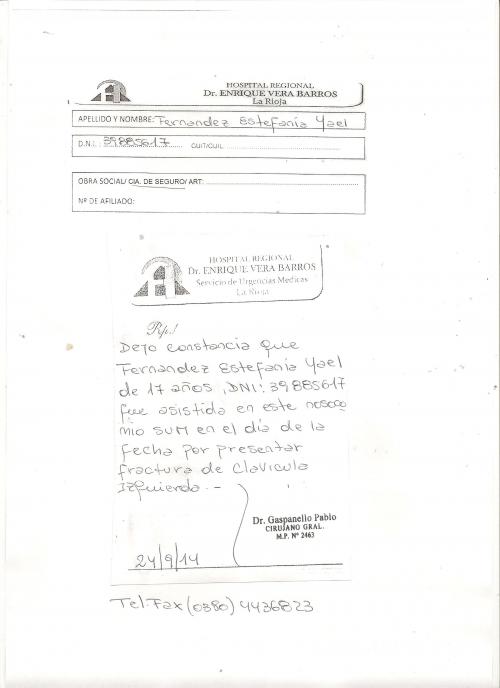 HOSPITAL REGIONAL
Dr. ENRIQUE VERA BARROS
La Rioja
APELLIDO Y NOMBRE: Fernandez Estefanía Yael
D.N.I.: 39885617 CUIT/CUIL:
OBRA SOCIAL/ CIA. DE SEGURO/ ART:
Nº DE AFILIADO:
HOSPITAL REGIONAL
Dr. ENRIQUE VERA BARROS
Servicio de Urgencias Medicas
La Rioja
Rp./
Dejo constancia que
Fernandez Estefanía Yael
de 17 años, DNI: 39885617
fue asistida en este nosoco
mio SUM en el día de la
fecha por presentar
fractura de clavicula
Izquierda.-
Dr. Gaspanello Pablo
CIRUJANO GRAL.
M.P. Nº 2463
24/9/14
Tel.Fax (0380) 4436823